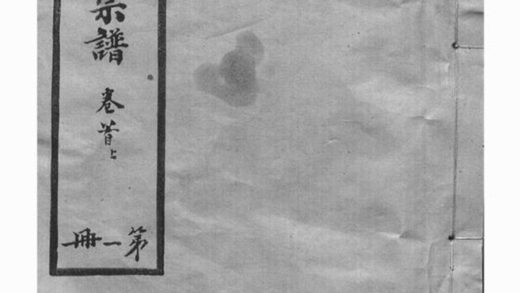 宗譜
卷首上
第一冊